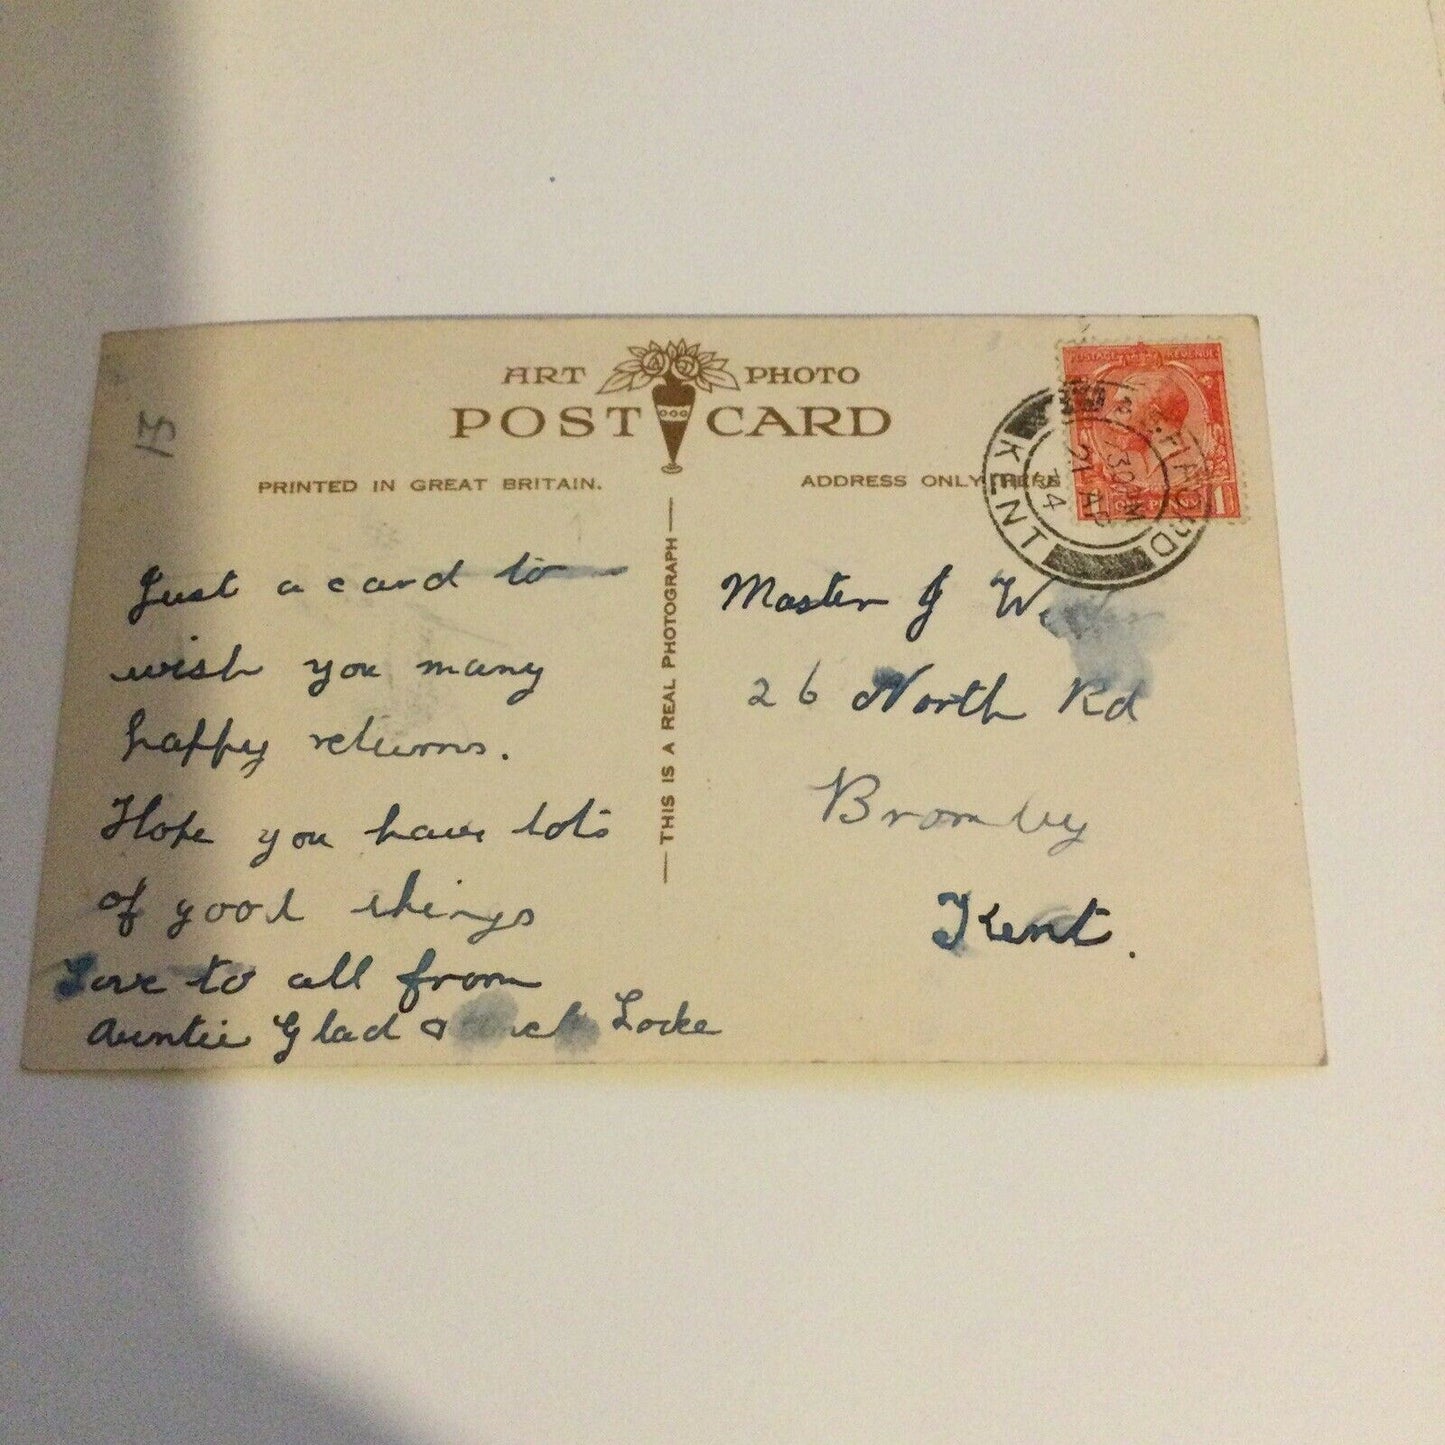 13
ART PHOTO
POST CARD
PRINTED IN GREAT BRITAIN.
ADDRESS ONLY HERE
THIS IS A REAL PHOTOGRAPH
Just a card to
wish you many
happy returns.
Hope you have lots
of good things
Love to all from
Auntie Glad & Locke
Master J
26 North Rd
Bromley
Kent.
POSTAGE REVENUE
KENT
730PM
21 AP
34